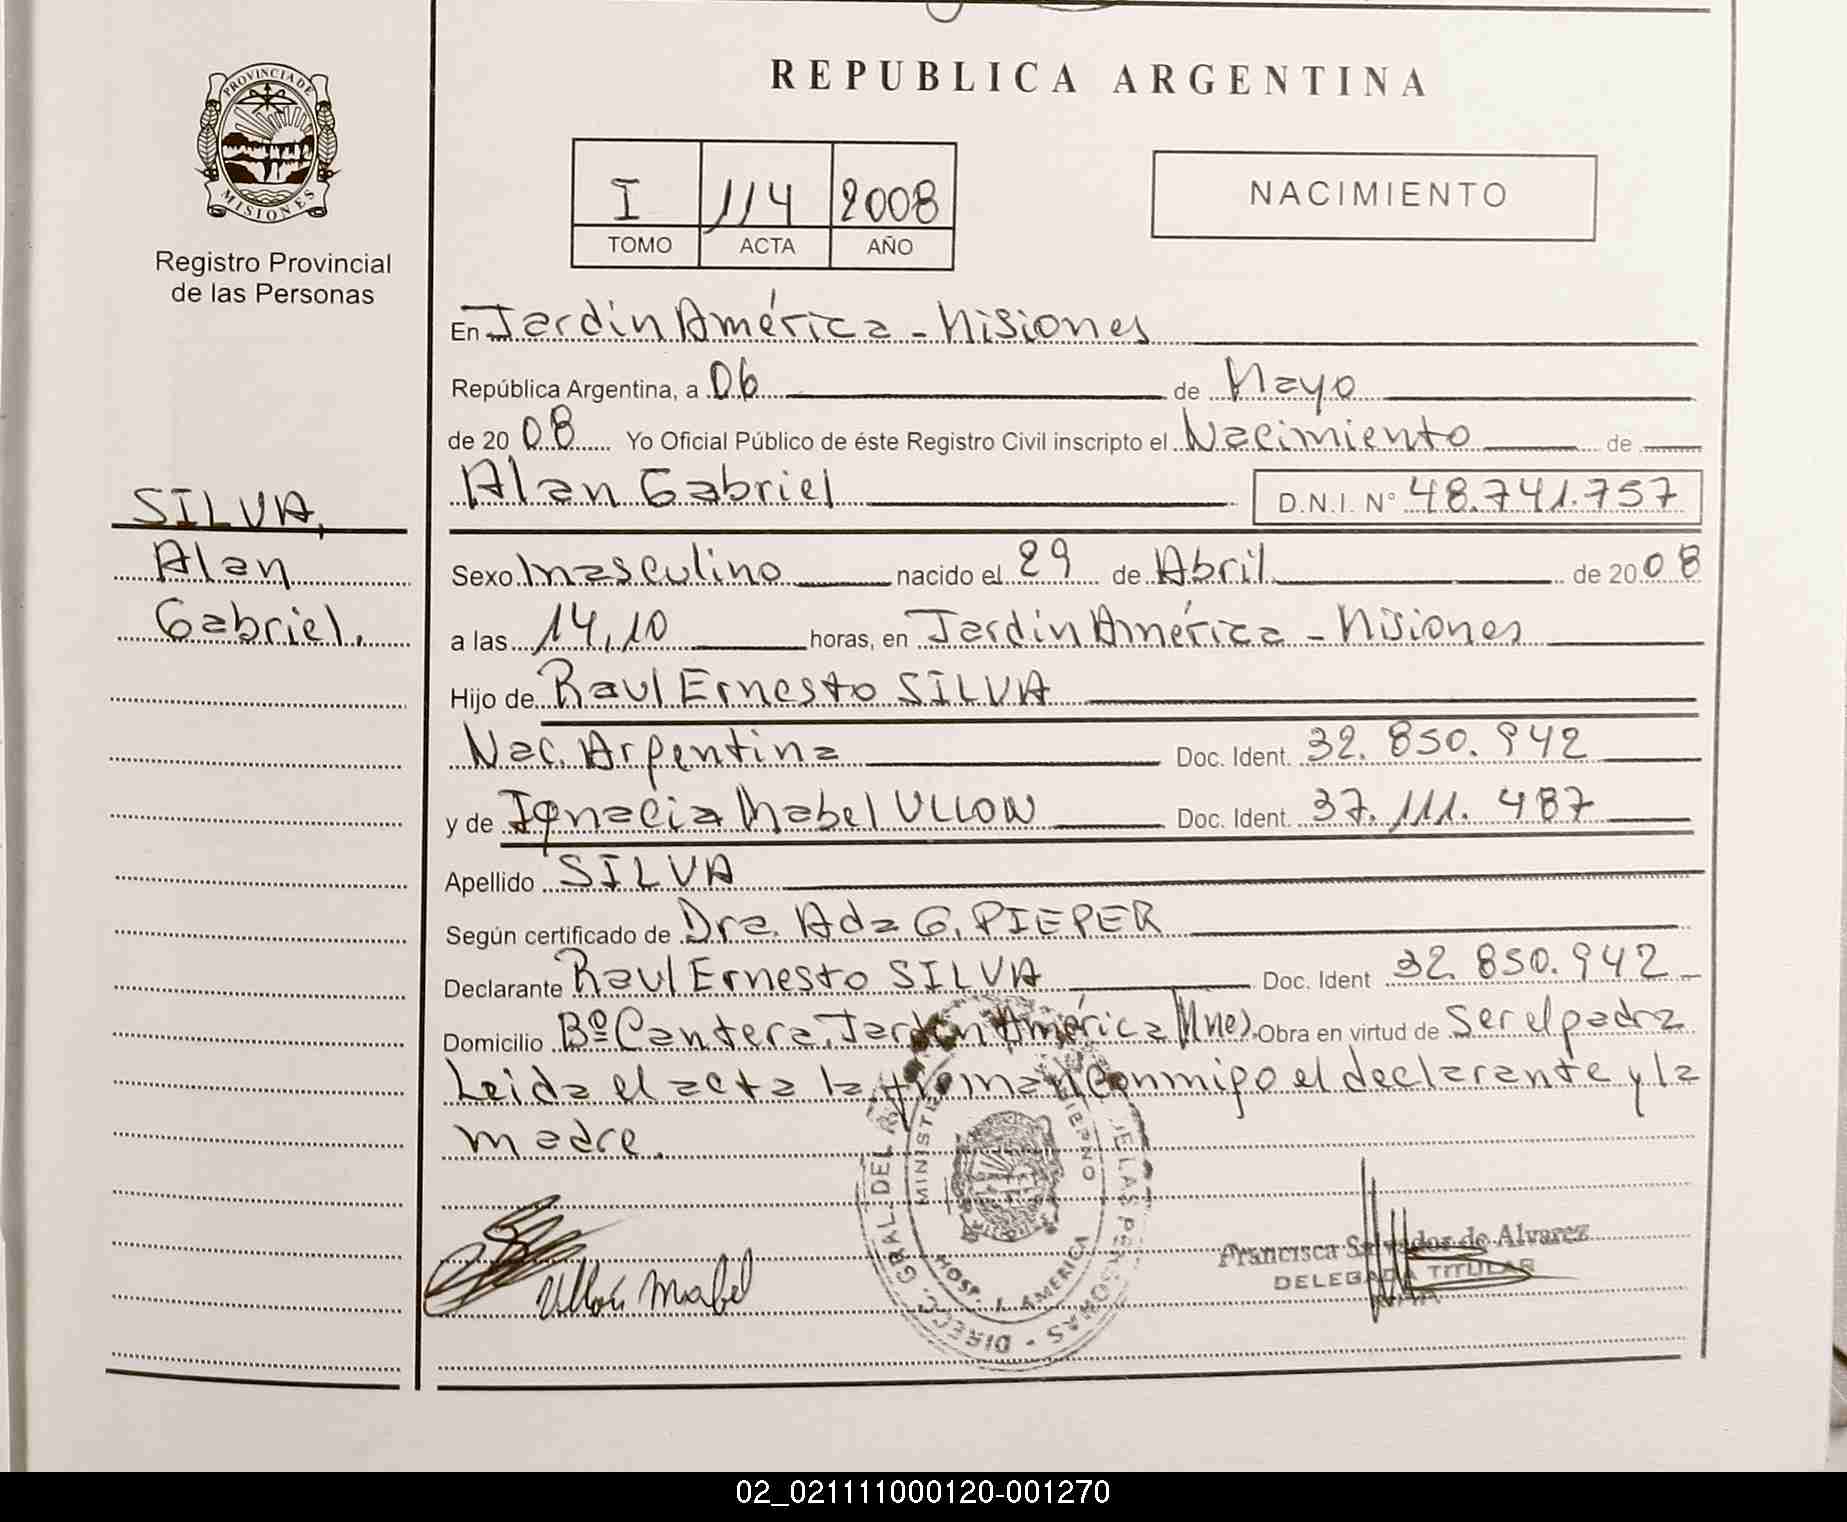 REPUBLICA ARGENTINA
PROVINCIA DE
MISIONES
Registro Provincial
de las Personas
I 114 2008
TOMO ACTA AÑO
NACIMIENTO
En Jardin América - Misiones
República Argentina, a 06 de Mayo
de 20 08 Yo Oficial Público de éste Registro Civil inscripto el Nacimiento de
Alan Gabriel D.N.I. N° 48.741.757
SILVA,
Alan
Gabriel.
Sexo masculino nacido el 29 de Abril de 20 08
a las 14,10 horas, en Jardin América - Misiones
Hijo de Raul Ernesto SILVA
Nac. Argentina Doc. Ident. 32.850.942
y de Ignacia Mabel ULLON Doc. Ident. 37.111.487
Apellido SILVA
Según certificado de Dra. Ada G. PIEPER
Declarante Raul Ernesto SILVA Doc. Ident 32.850.942
Domicilio Bº Cantera. Jardin América (Mnes). Obra en virtud de ser el padre
Leida el acta la firman conmigo el declarante y la
madre.
MINISTE BIERNO
DIRECC. GRAL. DEL DE LAS PERSONAS
HOSP. J. AMERICA
Ullon Mabel
Francisca Salvador de Alvarez
DELEGADA TITULAR
02_021111000120-001270